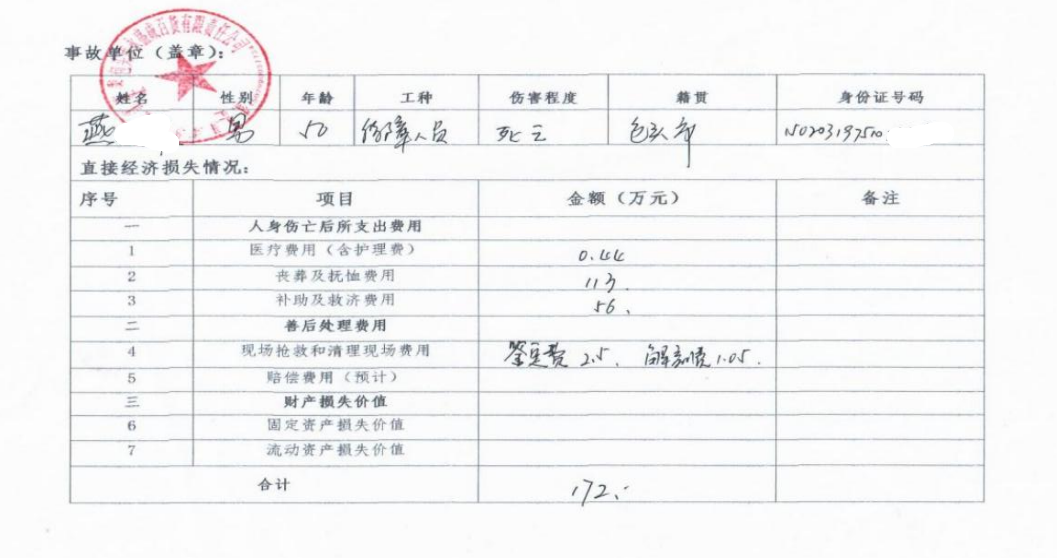 事故单位（盖章）：
姓名 性别 年龄 工种 伤害程度 籍贯 身份证号码
燕 男 50 保障人员 死亡 包头市
直接经济损失情况：
序号 项目 金额（万元） 备注
一 人身伤亡后所支出费用
1 医疗费用（含护理费） 0.44
2 丧葬及抚恤费用 113.
3 补助及救济费用 56.
二 善后处理费用
4 现场抢救和清理现场费用 鉴定费 2.5. 解剖费 1.05.
5 赔偿费用（预计）
三 财产损失价值
6 固定资产损失价值
7 流动资产损失价值
合计 172.